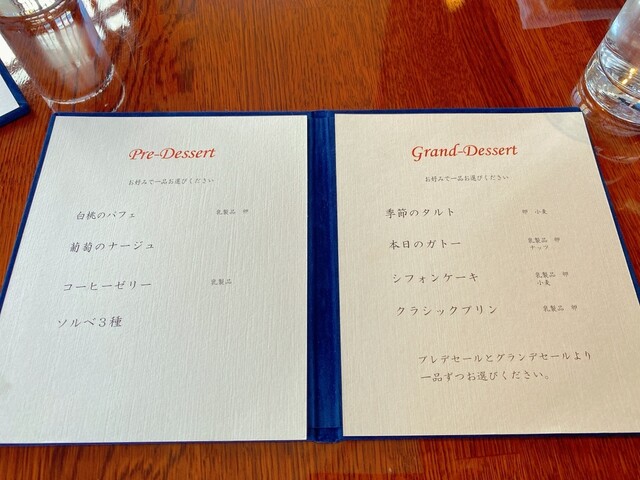 Pre-Dessert
お好みで一品お選びください
白桃のパフェ 乳製品 卵
葡萄のナージュ
コーヒーゼリー 乳製品
ソルベ3種
Grand-Dessert
お好みで一品お選びください
季節のタルト 卵 小麦
本日のガトー 乳製品 卵
ナッツ
シフォンケーキ 乳製品 卵
小麦
クラシックプリン 乳製品 卵
プレデセールとグランデセールより
一品ずつお選びください。